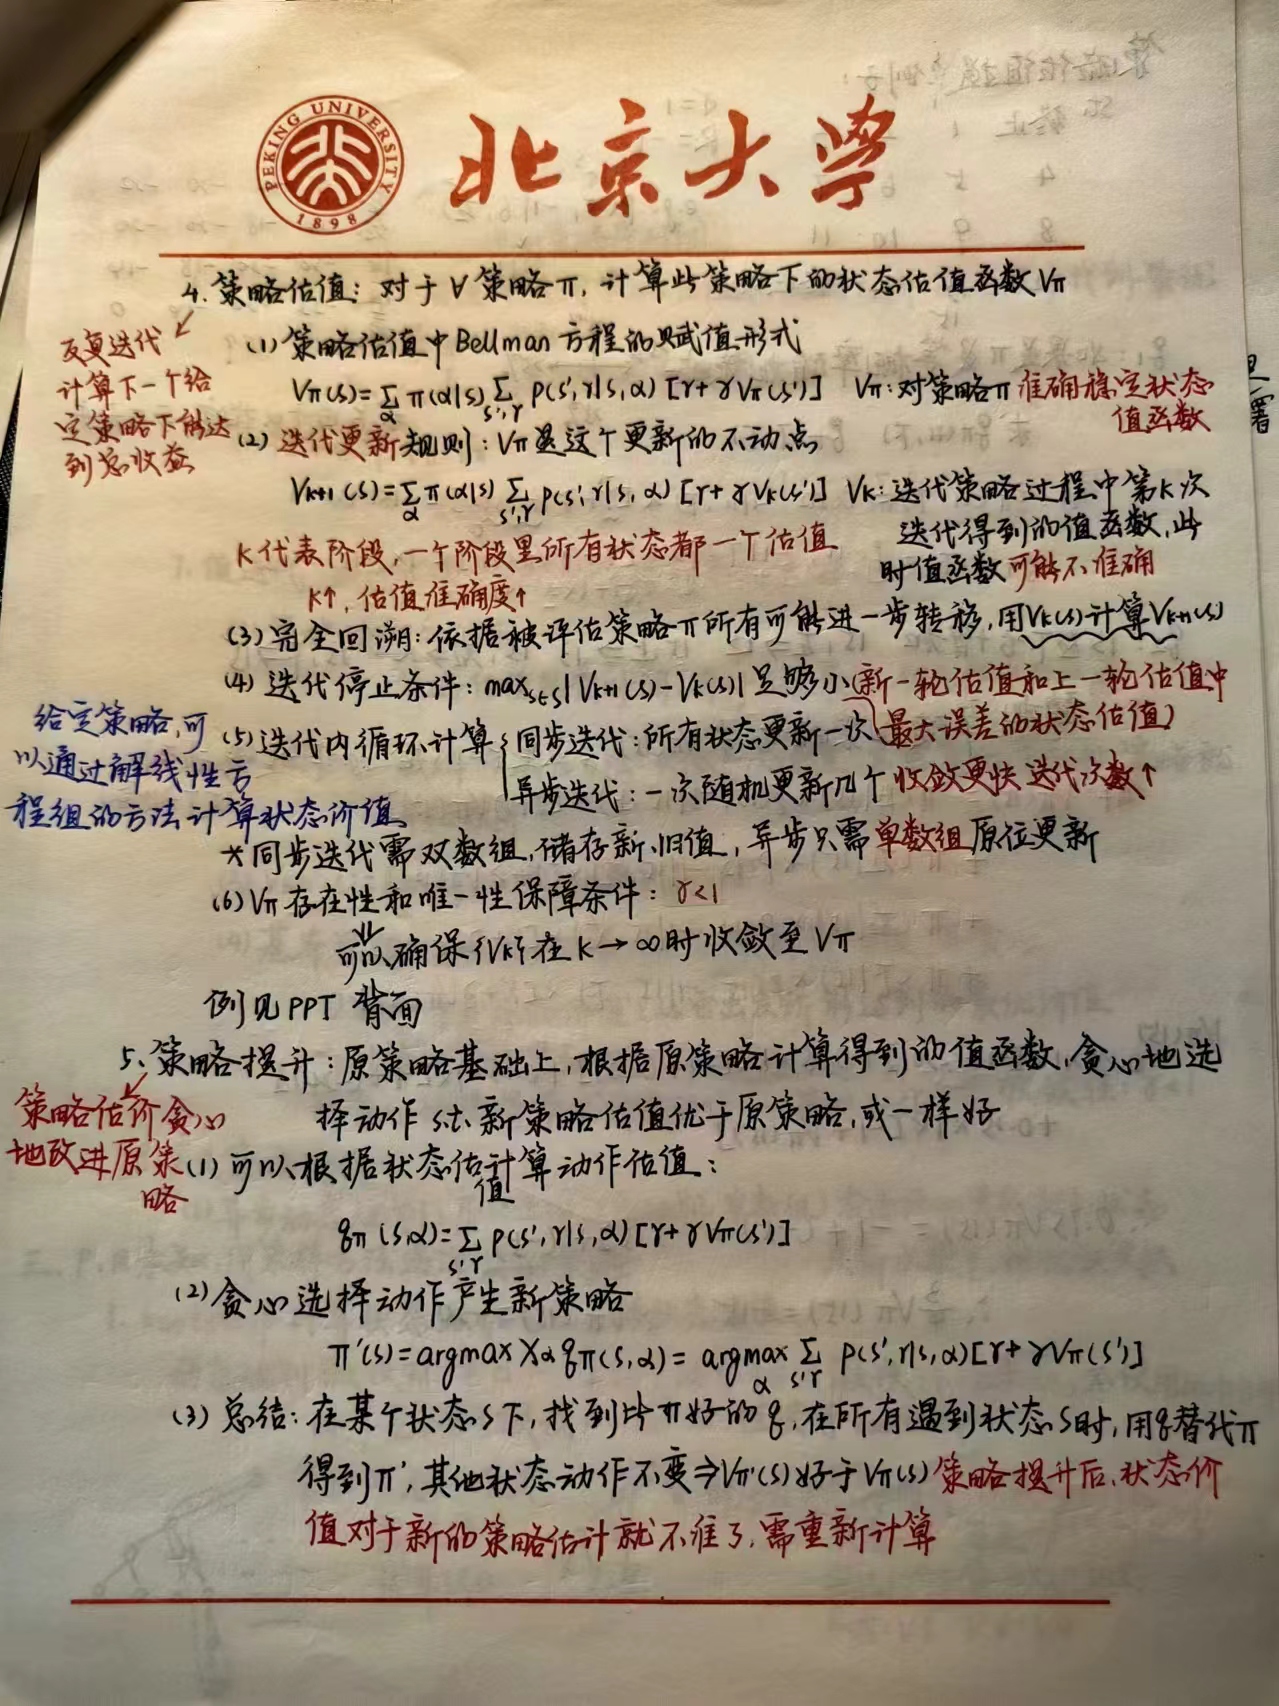 PEKING UNIVERSITY
1898
北京大学
4. 策略估值：对于∀策略π，计算此策略下的状态估值函数Vπ
反复迭代
计算下一个给
定策略下能达
到总收益
(1) 策略估值中Bellman方程的赋值形式
Vπ(s)=Σ_α π(α|s) Σ_{s',r} p(s',r|s,α)[r+γVπ(s')] Vπ:对策略π准确稳定状态
值函数
(2) 迭代更新规则：Vπ是这个更新的不动点
Vk+1(s)=Σ_α π(α|s) Σ_{s',r} p(s',r|s,α)[r+γVk(s')] Vk:迭代策略过程中第k次
迭代得到的值函数，此
时值函数可能不准确
K代表阶段，一个阶段里所有状态都一个估值
K↑，估值准确度↑
(3) 完全回溯：依据被评估策略π所有可能进一步转移，用Vk(s)计算Vk+1(s)
(4) 迭代停止条件：max_{s∈S}|Vk+1(s)-Vk(s)|足够小(新一轮估值和上一轮估值中
最大误差的状态估值)
给定策略，可
以通过解线性方
程组的方法计算状态价值
(5) 迭代内循环计算{同步迭代：所有状态更新一次
异步迭代：一次随机更新几个 收敛更快 迭代次数↑
*同步迭代需双数组，储存新、旧值，异步只需单数组原位更新
(6) Vπ存在性和唯一性保障条件：γ<1
⇓
可以确保{Vk}在k→∞时收敛至Vπ
例见PPT 背面
5. 策略提升：原策略基础上，根据原策略计算得到的值函数，贪心地选
择动作 s.t. 新策略估值优于原策略，或一样好
策略估价贪心
地改进原策
略
(1) 可以根据状态估值计算动作估值：
qπ(s,α)=Σ_{s',r} p(s',r|s,α)[r+γVπ(s')]
(2) 贪心选择动作产生新策略
π'(s)=argmax_α qπ(s,α)=argmax_α Σ_{s',r} p(s',r|s,α)[r+γVπ(s')]
(3) 总结：在某个状态s下，找到比π好的q，在所有遇到状态s时，用q替代π
得到π'，其他状态动作不变⇒Vπ'(s)好于Vπ(s) 策略提升后，状态价
值对于新的策略估计就不准了，需重新计算